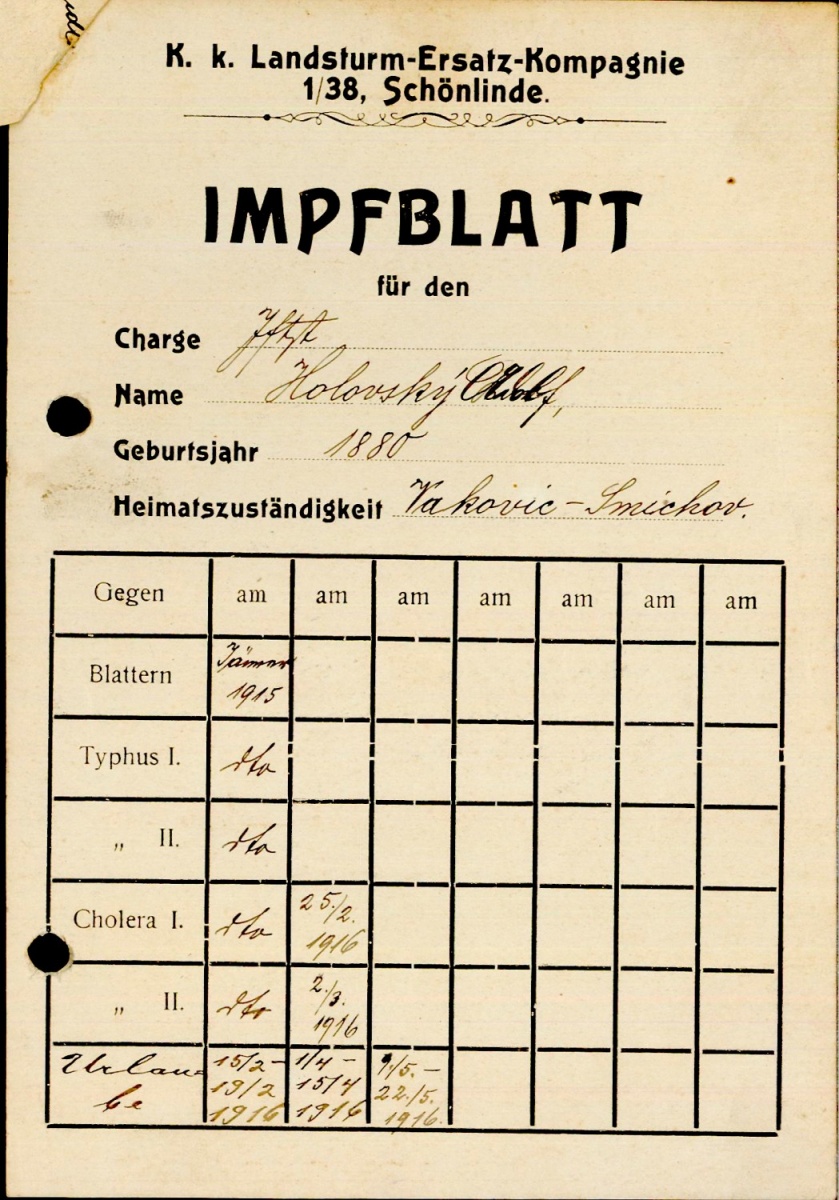 K. k. Landsturm-Ersatz-Kompagnie
1/38, Schönlinde.
IMPFBLATT
für den
Charge
Name Holovský Adolf,
Geburtsjahr 1880
Heimatszuständigkeit Vakovic - Smichov.
Gegen am am am am am am am
Blattern Jänner 1915
Typhus I. dto
„ II. dto
Cholera I. dto 25./2. 1916
„ II. dto 2./3. 1916
Urlaube 15/2 - 19/2 1916 1/4 - 15/4 1916 9./5. - 22./5. 1916.